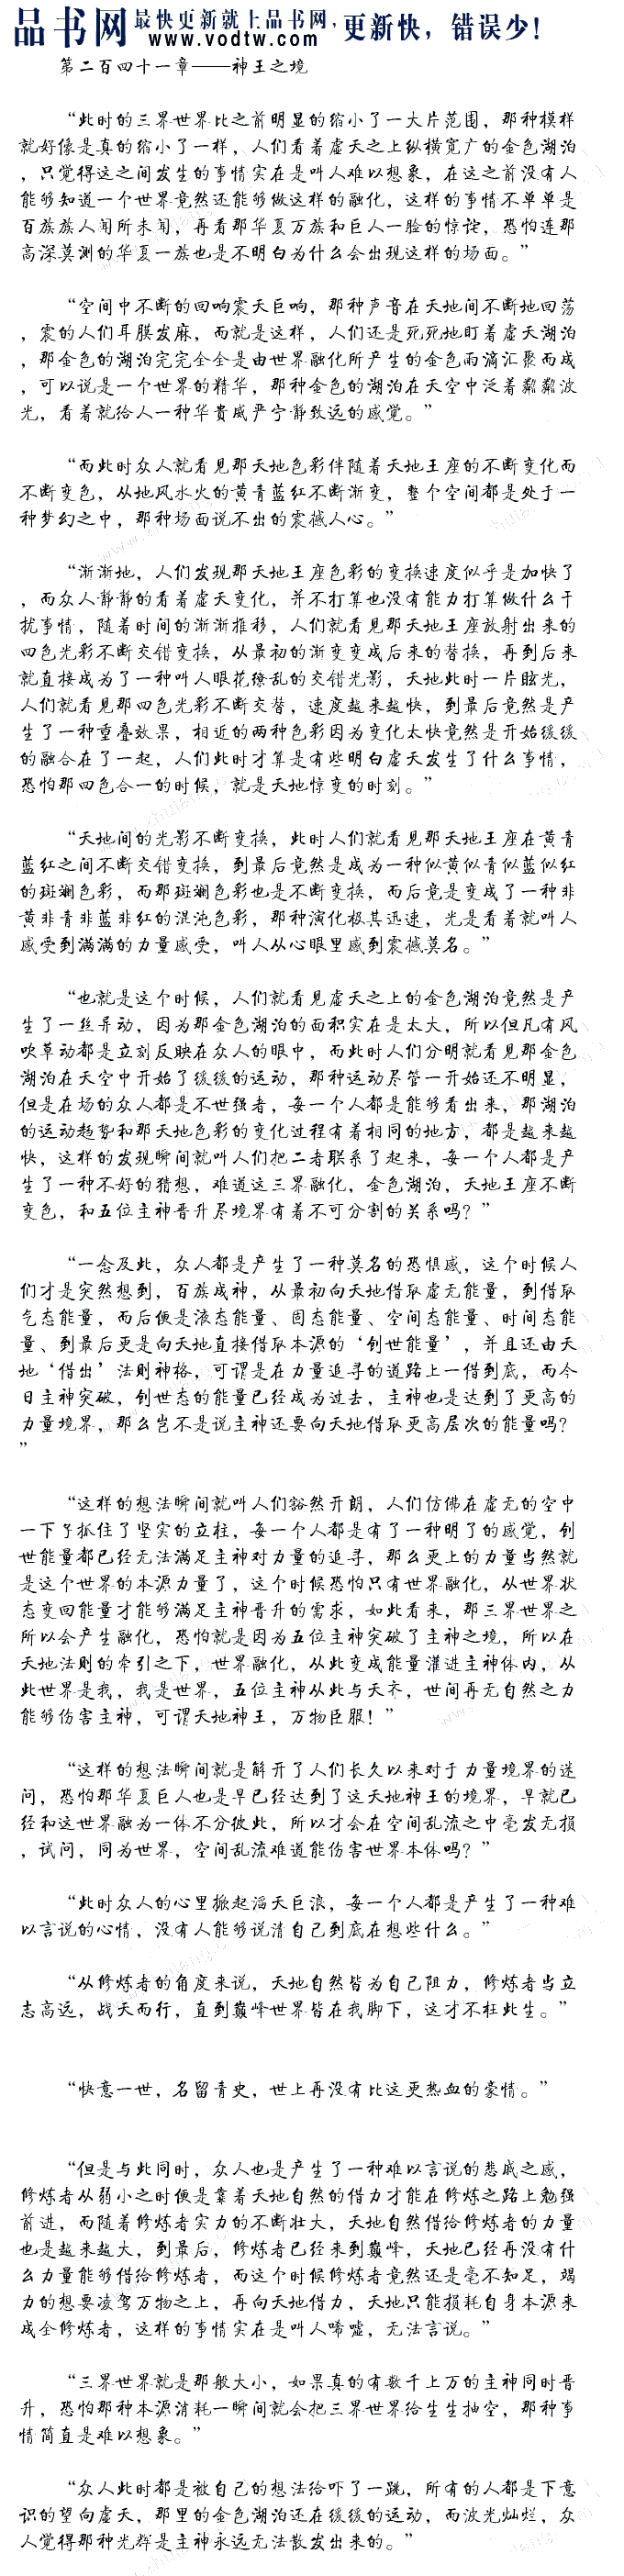 品书网 最快更新就上品书网，更新快，错误少！
www.vodtw.com
第二百四十一章——神王之境
“此时的三界世界比之前明显的缩小了一大片范围，那种模样
就好像是真的缩小了一样，人们看着虚天之上纵横宽广的金色湖泊
，只觉得这之间发生的事情实在是叫人难以想象，在这之前没有人
能够知道一个世界竟然还能够做这样的融化，这样的事情不单单是
百族族人闻所未闻，再看那华夏万族和巨人一脸的惊诧，恐怕连那
高深莫测的华夏一族也是不明白为什么会出现这样的场面。”
“空间中不断的回响震天巨响，那种声音在天地间不断地回荡
，震的人们耳膜发麻，而就是这样，人们还是死死地盯着虚天湖泊
，那金色的湖泊完完全全是由世界融化所产生的金色雨滴汇聚而成
，可以说是一个世界的精华，那种金色的湖泊在天空中泛着粼粼波
光，看着就给人一种华贵威严宁静致远的感觉。”
“而此时众人就看见那天地色彩伴随着天地王座的不断变化而
不断变色，从地风水火的黄青蓝红不断渐变，整个空间都是处于一
种梦幻之中，那种场面说不出的震撼人心。”
“渐渐地，人们发现那天地王座色彩的变换速度似乎是加快了
，而众人静静的看着虚天变化，并不打算也没有能力打算做什么干
扰事情，随着时间的渐渐推移，人们就看见那天地王座放射出来的
四色光彩不断交错变换，从最初的渐变变成后来的替换，再到后来
就直接成为了一种叫人眼花缭乱的交错光影，天地此时一片眩光，
人们就看见那四色光彩不断交替，速度越来越快，到最后竟然是产
生了一种重叠效果，相近的两种色彩因为变化太快竟然是开始缓缓
的融合在了一起，人们此时才算是有些明白虚天发生了什么事情，
恐怕那四色合一的时候，就是天地惊变的时刻。”
“天地间的光影不断变换，此时人们就看见那天地王座在黄青
蓝红之间不断交错变换，到最后竟然是成为一种似黄似青似蓝似红
的斑斓色彩，而那斑斓色彩也是不断变换，而后竟是变成了一种非
黄非青非蓝非红的混沌色彩，那种演化极其迅速，光是看着就叫人
感受到满满的力量感受，叫人从心眼里感到震撼莫名。”
“也就是这个时候，人们就看见虚天之上的金色湖泊竟然是产
生了一丝异动，因为那金色湖泊的面积实在是太大，所以但凡有风
吹草动都是立刻反映在众人的眼中，而此时人们分明就看见那金色
湖泊在天空中开始了缓缓的运动，那种运动尽管一开始还不明显，
但是在场的众人都是不世强者，每一个人都是能够看出来，那湖泊
的运动趋势和那天地色彩的变化过程有着相同的地方，都是越来越
快，这样的发现瞬间就叫人们把二者联系了起来，每一个人都是产
生了一种不好的猜想，难道这三界融化，金色湖泊，天地王座不断
变色，和五位主神晋升尽境界有着不可分割的关系吗？”
“一念及此，众人都是产生了一种莫名的恐惧感，这个时候人
们才是突然想到，百族成神，从最初向天地借取虚无能量，到借取
气态能量，而后便是液态能量、固态能量、空间态能量、时间态能
量、到最后更是向天地直接借取本源的‘创世能量’，并且还由天
地‘借出’法则神格，可谓是在力量追寻的道路上一借到底，而今
日主神突破，创世态的能量已经成为过去，主神也是达到了更高的
力量境界，那么岂不是说主神还要向天地借取更高层次的能量吗？
”
“这样的想法瞬间就叫人们豁然开朗，人们仿佛在虚无的空中
一下子抓住了坚实的立柱，每一个人都是有了一种明了的感觉，创
世能量都已经无法满足主神对力量的追寻，那么更上的力量当然就
是这个世界的本源力量了，这个时候恐怕只有世界融化，从世界状
态变回能量才能够满足主神晋升的需求，如此看来，那三界世界之
所以会产生融化，恐怕就是因为五位主神突破了主神之境，所以在
天地法则的牵引之下，世界融化，从此变成能量灌进主神体内，从
此世界是我，我是世界，五位主神从此与天齐，世间再无自然之力
能够伤害主神，可谓天地神王，万物臣服！”
“这样的想法瞬间就是解开了人们长久以来对于力量境界的迷
问，恐怕那华夏巨人也是早已经达到了这天地神王的境界，早就已
经和这世界融为一体不分彼此，所以才会在空间乱流之中毫发无损
，试问，同为世界，空间乱流难道能伤害世界本体吗？”
“此时众人的心里掀起滔天巨浪，每一个人都是产生了一种难
以言说的心情，没有人能够说清自己到底在想些什么。”
“从修炼者的角度来说，天地自然皆为自己阻力，修炼者当立
志高远，战天而行，直到巅峰世界皆在我脚下，这才不枉此生。”
“快意一世，名留青史，世上再没有比这更热血的豪情。”
“但是与此同时，众人也是产生了一种难以言说的悲戚之感，
修炼者从弱小之时便是靠着天地自然的借力才能在修炼之路上勉强
前进，而随着修炼者实力的不断壮大，天地自然借给修炼者的力量
也是越来越大，到最后，修炼者已经来到巅峰，天地已经再没有什
么力量能够借给修炼者，而这个时候修炼者竟然还是毫不知足，竭
力的想要凌驾万物之上，再向天地借力，天地只能损耗自身本源来
成全修炼者，这样的事情实在是叫人唏嘘，无法言说。”
“三界世界就是那般大小，如果真的有数千上万的主神同时晋
升，恐怕那种本源消耗一瞬间就会把三界世界给生生抽空，那种事
情简直是难以想象。”
“众人此时都是被自己的想法给吓了一跳，所有的人都是下意
识的望向虚天，那里的金色湖泊还在缓缓的运动，而波光灿烂，众
人觉得那种光辉是主神永远无法散发出来的。”